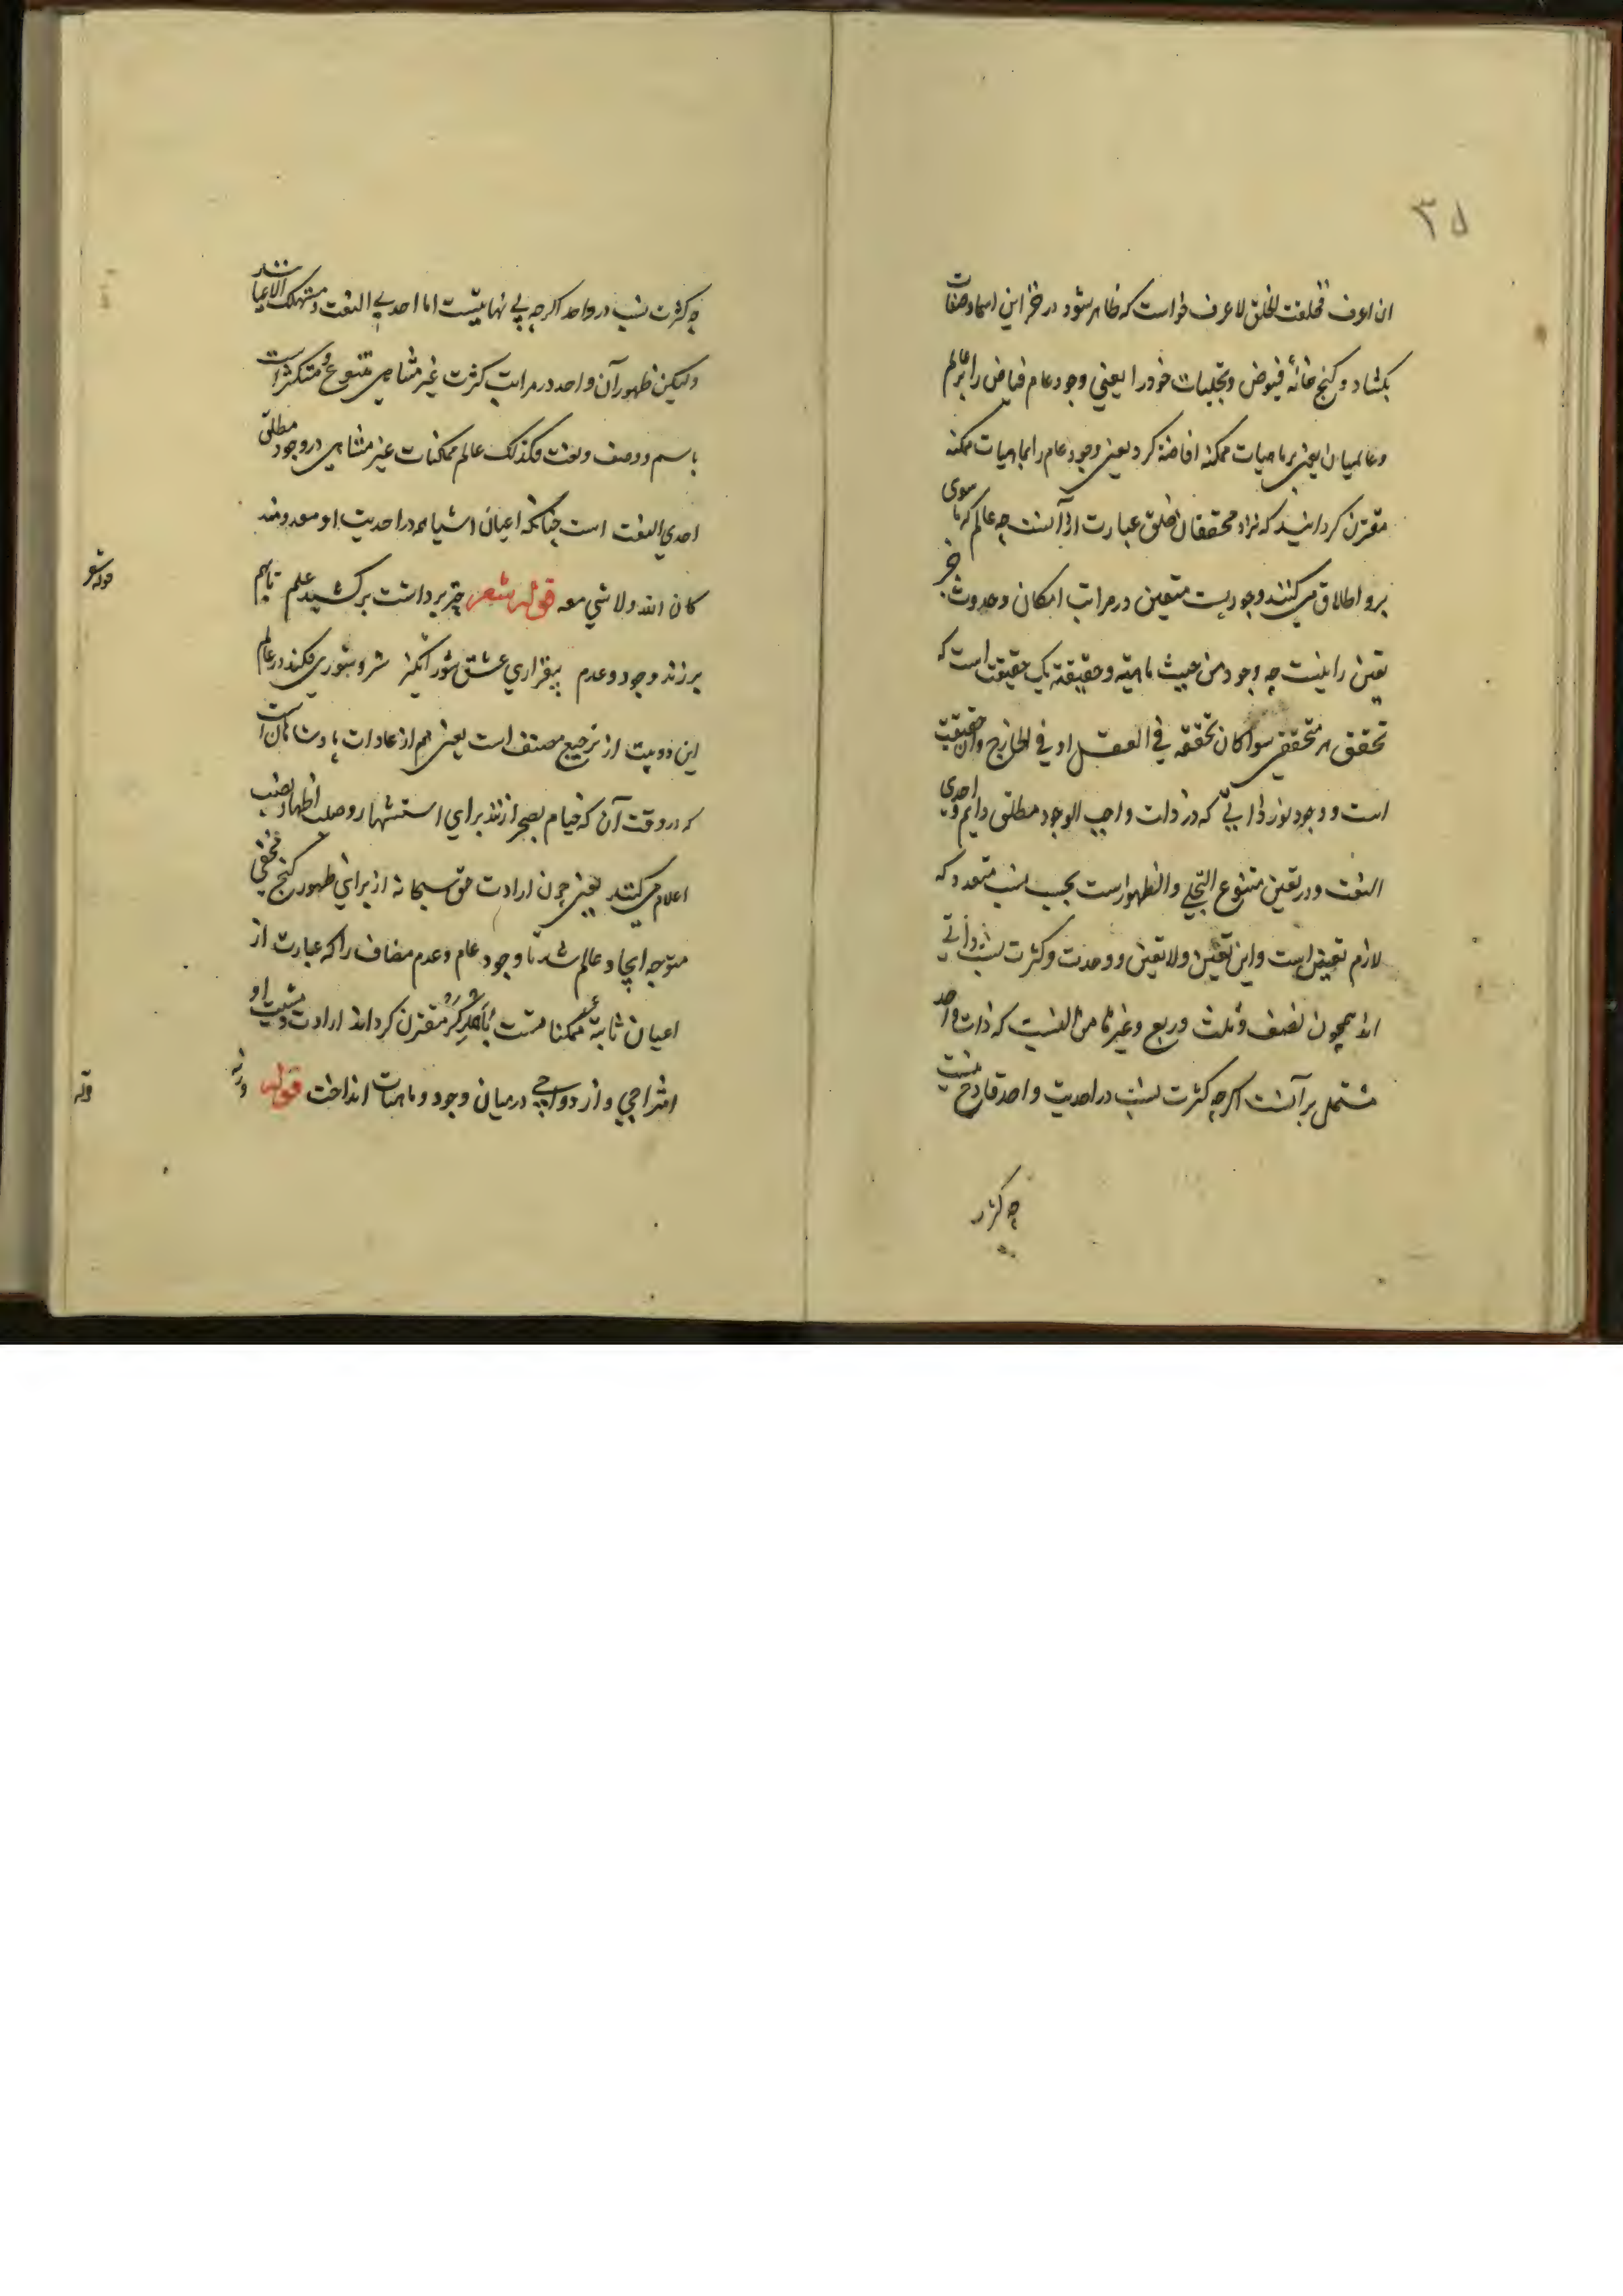 ۳۵
ان اعرف فخلقت الخلق لاعرف خواست که ظاهر شود در خزاین اسما و صفات
بکشاد و کنج خانهٔ فیوض و تجلیات خود را یعنی وجود عام فیاض را بر عالم
و عالمیان یعنی بر ماهیات ممکنه افاضة کرد یعنی وجود عام را بماهیات ممکنه
مقترن کردانید که نزد محققان خلق عبارت از آنست چه عالم که ما سوی
برو اطلاق می کنند وجودیست متعین در مراتب امکان و حدوث جز
تعین را نیست چه وجود من حیث ماهیته و حقیقته یک حقیقت است که
تحقق هر متحققی سوا کان تحققه فی العقل او فی الخارج و آن حقیقت
است و وجود نور ذاتی که در ذات واجب الوجود مطلق دایم و احدی
النعت و در تعین متنوع التجلی و الظهورست بحسب نسب متعدد که
لازم تعینست و این تعین و لا تعین و وحدت و کثرت نسب ذاتی
اند همچون نصف و ثلث و ربع و غیرها من النسب که ذات واحد
مشتمل بر آنست اکرچه کثرت نسب در احدیت واحد قادح نیست
چه کثرت
چه کثرت نسب در واحد اکرچه بی نهایتست اما احدی النعت و مستهلک الاعیانند
ولیکن ظهور آن واحد در مراتب کثرت غیر متناهی متنوع و متکثر است
باسم و وصف و نعت فکذلک عالم ممکنات غیر متناهی در وجود مطلق
احدی النعت است چنانکه اعیان اشیا همه در احدیت او معدومند
کان الله ولا شی معه قوله شعر چتر برداشت برکشید علم تا بهم
برزند وجود و عدم بیقراری عشق شورانکیز شر و شوری فکند در عالم
این دو بیت از ترجیع مصنف است یعنی هم از عادات پادشاهان است
که در وقت آن که خیام بصحرا زنند برای استشهار و صلت اظهار نصب
اعلام می کنند یعنی چون ارادت حق سبحانه از برای ظهور کنج مخفی
متوجه ایجاد عالم شد تا وجود عام و عدم مضاف را که عبارت از
اعیان ثابتهٔ ممکناتست با یکدیکر مقترن کرداند ارادت و مشیت او
امتزاجی و ازدواجی در میان وجود و ماهیات انداخت قوله
ورنه
قوله شعر
قوله